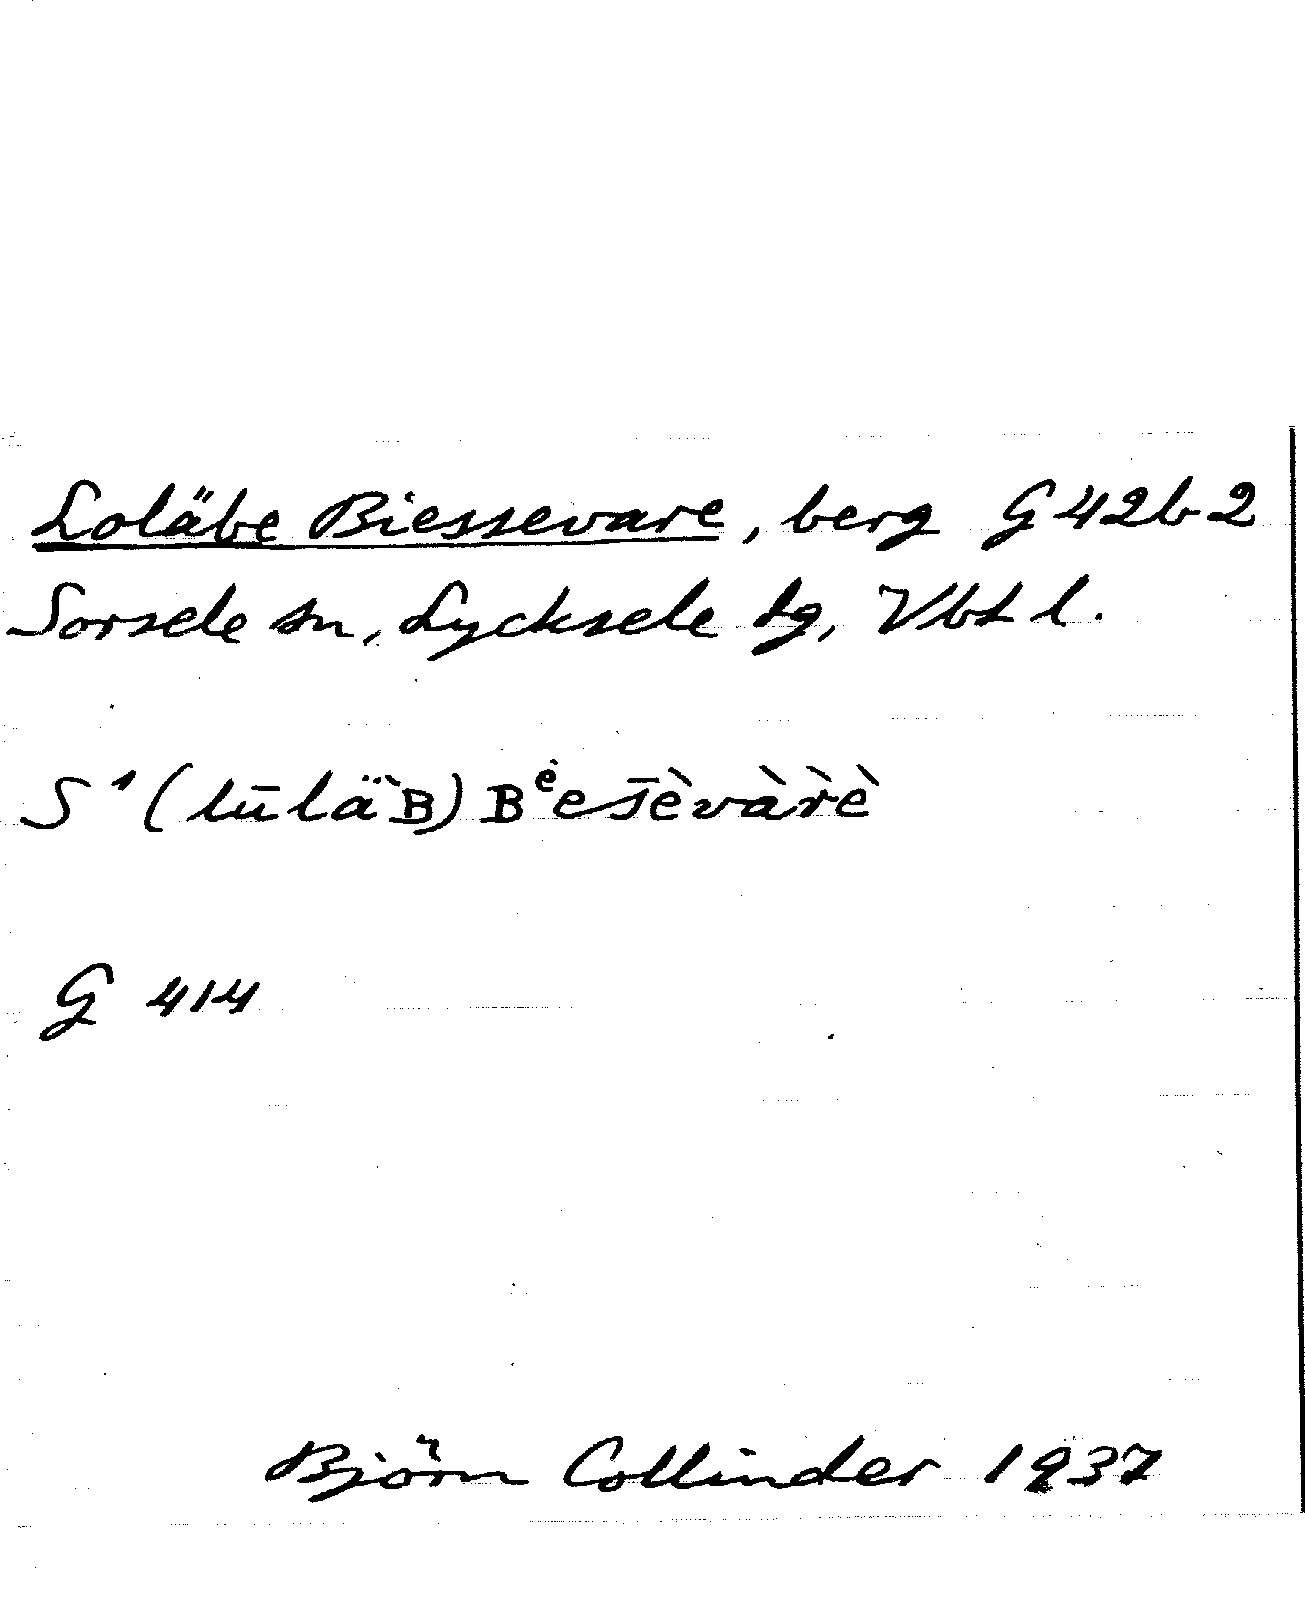 Loläbe Biessevare, berg G 42b2
Sorsele sn, Lycksele dg, Vbt l.
S ' (lūlä̀B) Bᵉ̇es̄èvàr̀è
G 414
Björn Collinder 1937